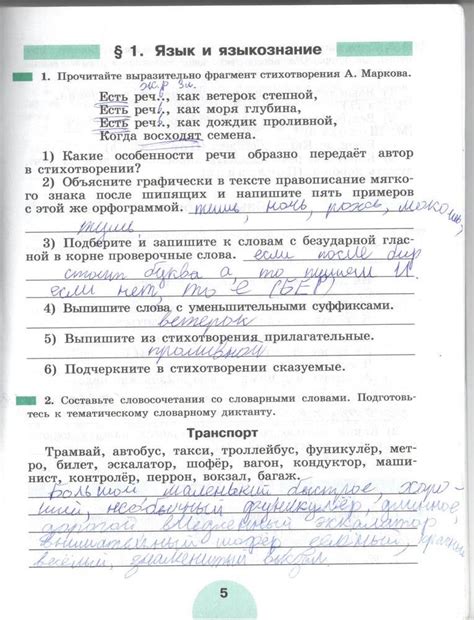 § 1. Язык и языкознание
1. Прочитайте выразительно фрагмент стихотворения А. Маркова.
ж.р 3 л.
Есть речь, как ветерок степной,
Есть речь, как моря глубина,
Есть речь, как дождик проливной,
Когда восходят семена.
1) Какие особенности речи образно передаёт автор
в стихотворении?
2) Объясните графически в тексте правописание мягко-
го знака после шипящих и напишите пять примеров
с этой же орфограммой. тишь, ночь, рожь,
3) Подберите и запишите к словам с безударной глас-
ной в корне проверочные слова. если после бир
стоит буква а, то пишем И
если нет, то е (БЕР)
4) Выпишите слова с уменьшительными суффиксами.
ветерок
5) Выпишите из стихотворения прилагательные.
проливной
6) Подчеркните в стихотворении сказуемые.
2. Составьте словосочетания со словарными словами. Подготовь-
тесь к тематическому словарному диктанту.
Транспорт
Трамвай, автобус, такси, троллейбус, фуникулёр, мет-
ро, билет, эскалатор, шофёр, вагон, кондуктор, маши-
нист, контролёр, перрон, вокзал, багаж.
Большой, маленький быстрое, хоро-
ший, необычный фуникулёр, длинное,
дорогой эскалатор,
внимательный шофёр зелёный, красный
весёлый, знаменитый вокзал
5